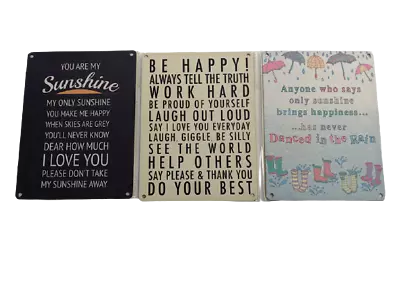 YOU ARE MY
Sunshine
MY ONLY SUNSHINE
YOU MAKE ME HAPPY
WHEN SKIES ARE GREY
YOU'LL NEVER KNOW
DEAR HOW MUCH
I LOVE YOU
PLEASE DON'T TAKE
MY SUNSHINE AWAY
BE HAPPY!
ALWAYS TELL THE TRUTH
WORK HARD
BE PROUD OF YOURSELF
LAUGH OUT LOUD
SAY I LOVE YOU EVERYDAY
LAUGH, GIGGLE, BE SILLY
SEE THE WORLD
HELP OTHERS
SAY PLEASE & THANK YOU
DO YOUR BEST
Anyone who says
only sunshine
brings happiness...
...has never
Danced in the Rain